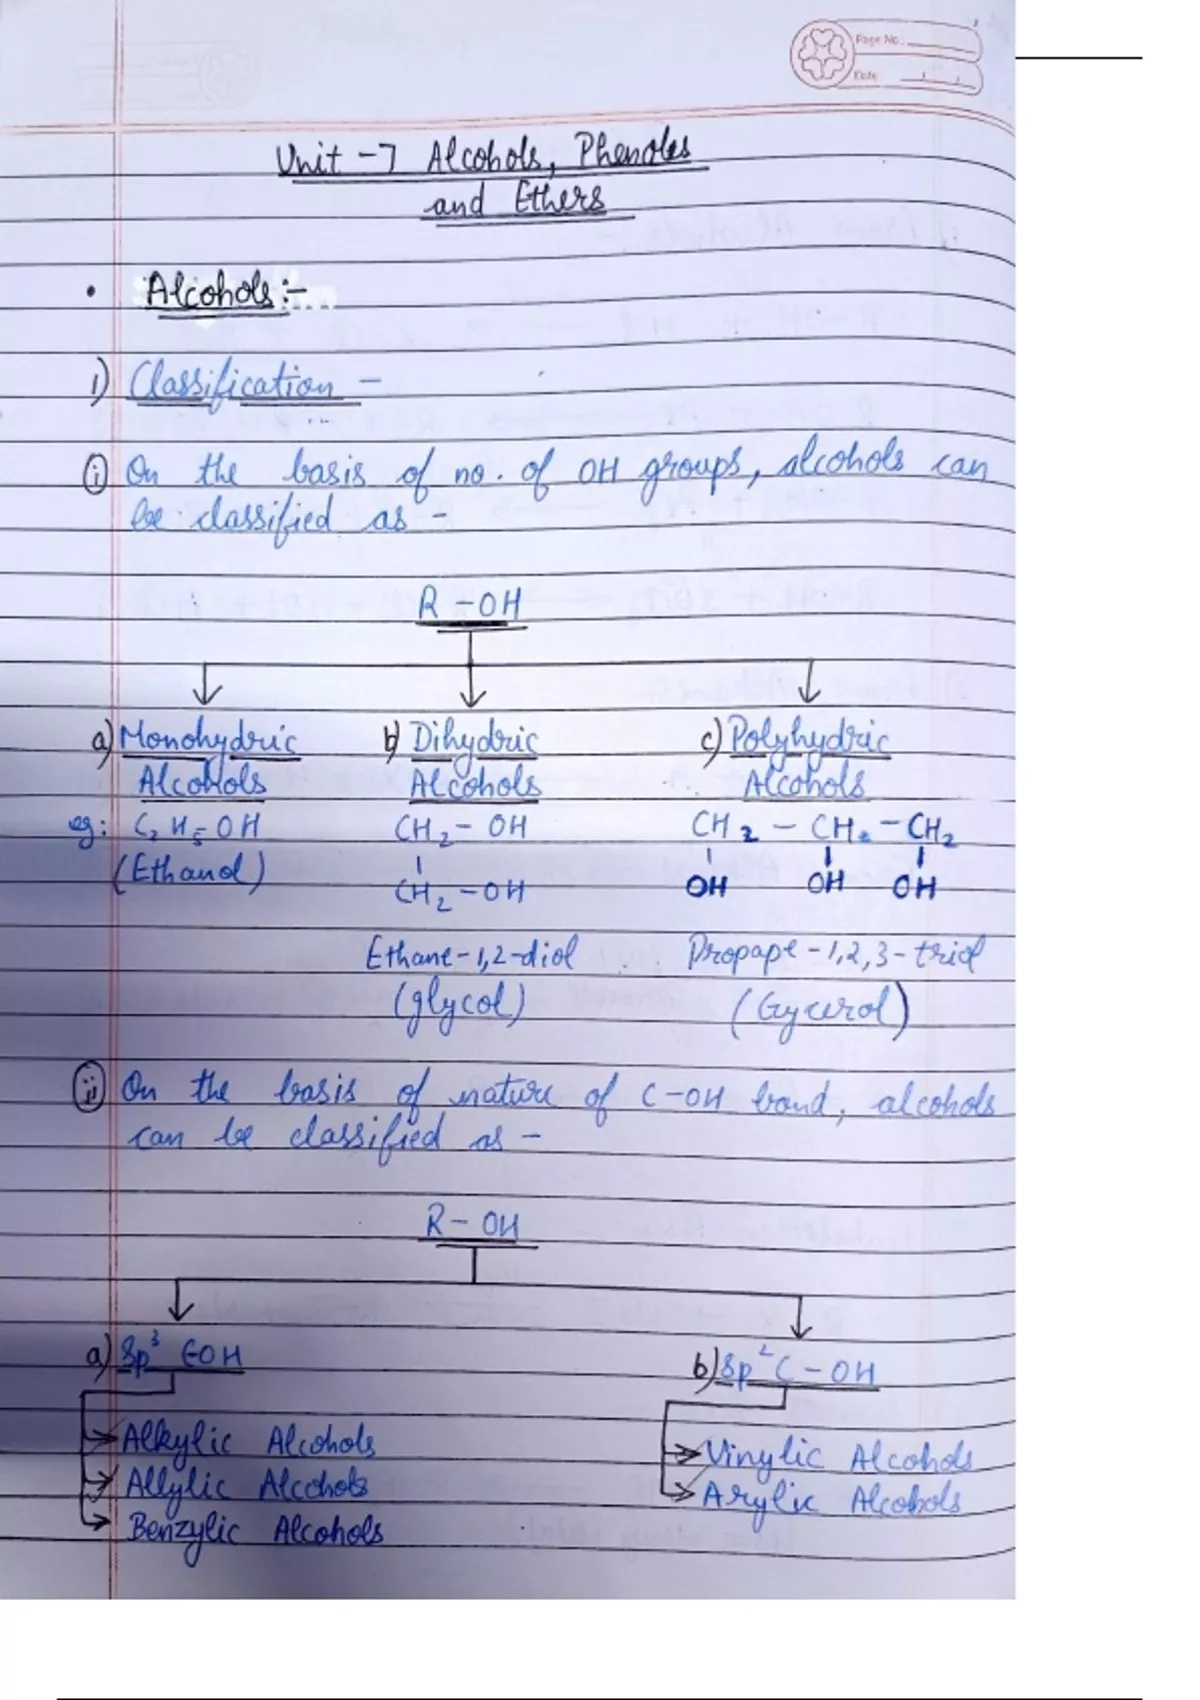 Page No.
Date
Unit - 7 Alcohols, Phenoles
and Ethers
• Alcohols :-
1) Classification -
(i) On the basis of no. of OH groups, alcohols can
be classified as -
R - OH
a) Monohydric b) Dihydric c) Polyhydric
Alcohols Alcohols Alcohols
eg: C₂H₅OH CH₂ - OH CH₂ - CH₂ - CH₂
(Ethanol) CH₂ - OH OH OH OH
Ethane-1,2-diol Propape-1,2,3-triol
(glycol) (Gycerol)
(ii) On the basis of nature of C-OH bond, alcohols
can be classified as -
R - OH
a) Sp³ C-OH b) Sp² C - OH
Alkylic Alcohols Vinylic Alcohols
Allylic Alcohols Arylic Alcohols
Benzylic Alcohols